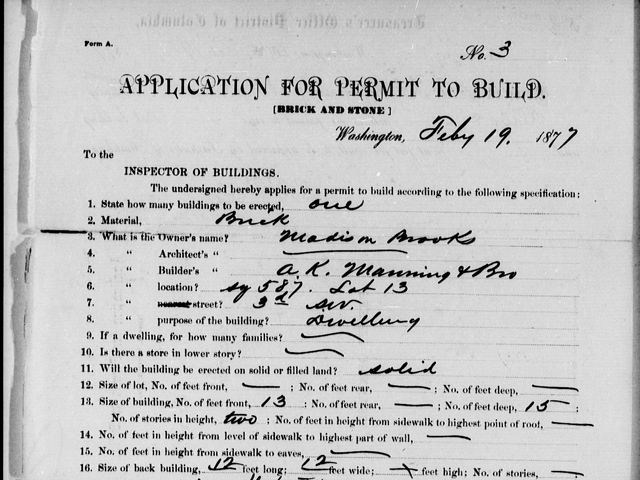 Treasurer's Office District of Columbia,
Form A.
No. 3
APPLICATION FOR PERMIT TO BUILD.
[BRICK AND STONE]
Washington, Feby 19. 1877
To the
INSPECTOR OF BUILDINGS.
The undersigned hereby applies for a permit to build according to the following specification:
1. State how many buildings to be erected, one
2. Material, Brick
3. What is the Owner's name? Madison Brooks
4. " Architect's "
5. " Builder's " A. K. Manning & Bro
6. " location? sq 587. Lot 13
7. " nearest street? 3rd SW.
8. " purpose of the building? Dwelling
9. If a dwelling, for how many families?
10. Is there a store in lower story?
11. Will the building be erected on solid or filled land? solid
12. Size of lot, No. of feet front, — ; No. of feet rear, — ; No. of feet deep, —
13. Size of building, No. of feet front, 13 ; No. of feet rear, — ; No. of feet deep, 15 ;
No. of stories in height, two ; No. of feet in height from sidewalk to highest point of roof, —
14. No. of feet in height from level of sidewalk to highest part of wall, —
15. No. of feet in height from sidewalk to eaves, —
16. Size of back building, 12 feet long; 12 feet wide; — feet high; No. of stories, —